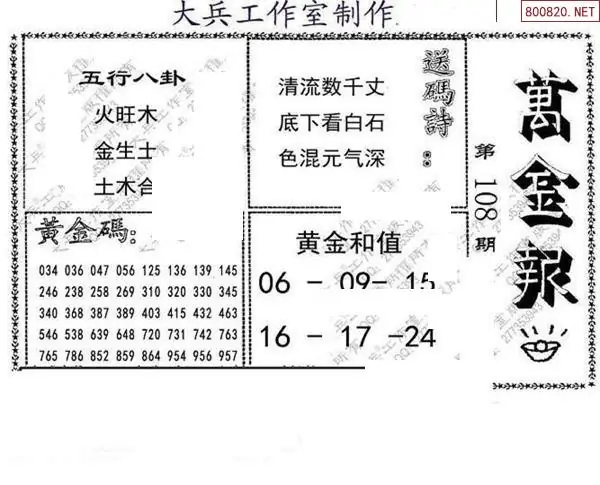 大兵工作室制作
800820.NET
五行八卦
火旺木
金生土
土木合
清流数千丈
底下看白石
色混元气深
送碼詩：
萬金報
第108期
黃金碼：
034 036 047 056 125 136 139 145
246 238 258 269 310 320 330 345
340 368 387 389 403 415 432 463
546 538 639 648 720 731 742 763
765 786 852 859 864 954 956 957
黄金和值
06 - 09 - 15
16 - 17 - 24